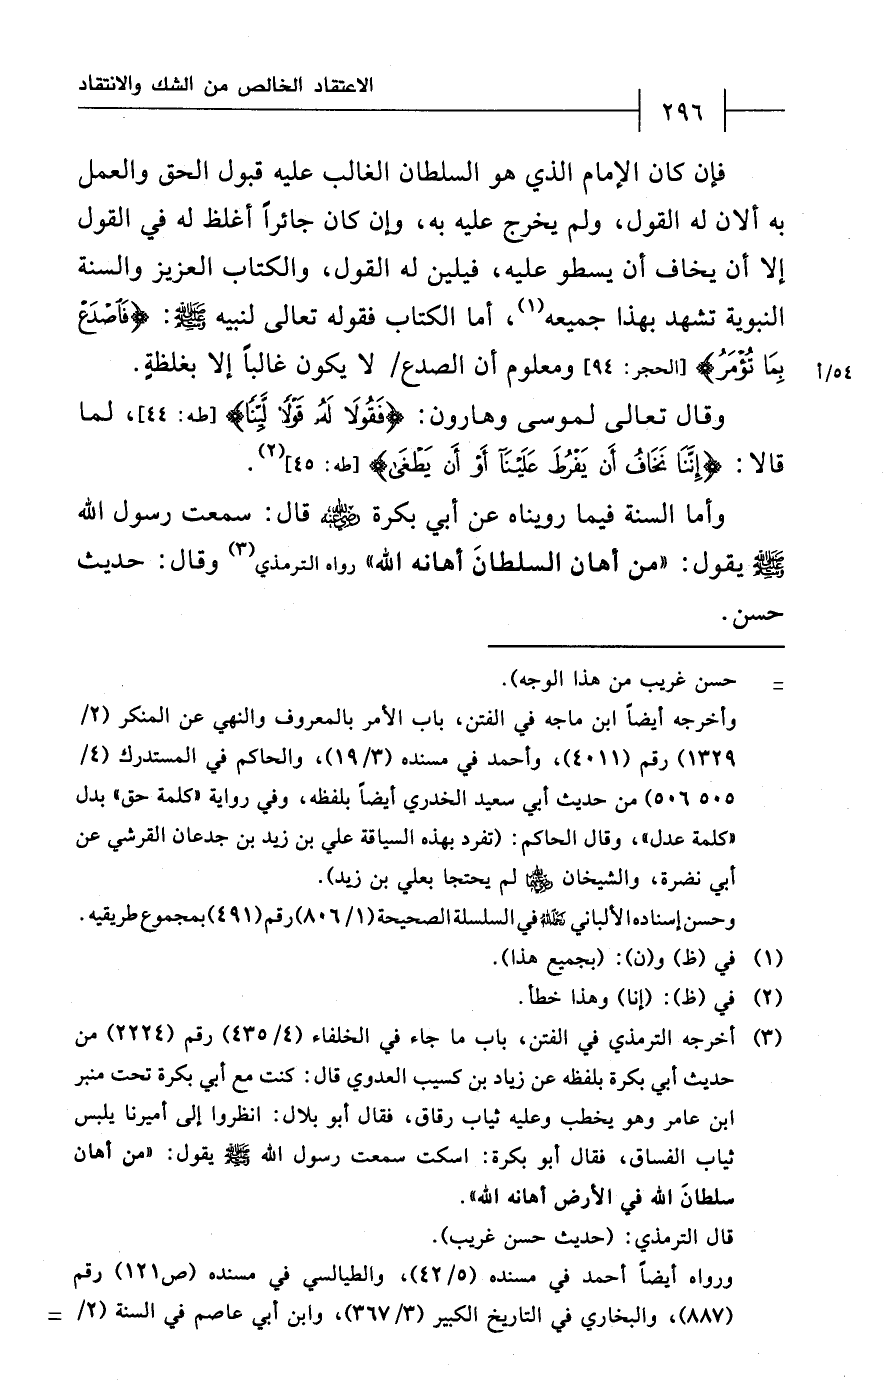 الاعتقاد الخالص من الشك والانتقاد
٢٩٦
فإن كان الإمام الذي هو السلطان الغالب عليه قبول الحق والعمل
به ألان له القول، ولم يخرج عليه به، وإن كان جائراً أغلظ له في القول
إلا أن يخاف أن يسطو عليه، فيلين له القول، والكتاب العزيز والسنة
النبوية تشهد بهذا جميعه(١)، أما الكتاب فقوله تعالى لنبيه ﷺ: ﴿فَٱصْدَعْ
بِمَا تُؤْمَرُ﴾ [الحجر: ٩٤] ومعلوم أن الصدع/ لا يكون غالباً إلا بغلظةٍ.
٥٤/أ
وقال تعالى لموسى وهارون: ﴿فَقُولَا لَهُۥ قَوْلًا لَّيِّنًا﴾ [طه: ٤٤]، لما
قالا: ﴿إِنَّنَا نَخَافُ أَن يَفْرُطَ عَلَيْنَآ أَوْ أَن يَطْغَىٰ﴾ [طه: ٤٥](٢).
وأما السنة فيما رويناه عن أبي بكرة رضي الله عنه قال: سمعت رسول الله
ﷺ يقول: «من أهان السلطانَ أهانه الله» رواه الترمذي(٣) وقال: حديث
حسن.
= حسن غريب من هذا الوجه).
وأخرجه أيضاً ابن ماجه في الفتن، باب الأمر بالمعروف والنهي عن المنكر (٢/
١٣٢٩) رقم (٤٠١١)، وأحمد في مسنده (١٩/٣)، والحاكم في المستدرك (٤/
٥٠٥ ٥٠٦) من حديث أبي سعيد الخدري أيضاً بلفظه، وفي رواية «كلمة حق» بدل
«كلمة عدل»، وقال الحاكم: (تفرد بهذه السياقة علي بن زيد بن جدعان القرشي عن
أبي نضرة، والشيخان رضي الله عنهما لم يحتجا بعلي بن زيد).
وحسن إسناده الألباني رحمه الله في السلسلة الصحيحة (٨٠٦/١) رقم (٤٩١) بمجموع طريقيه.
(١) في (ظ) و(ن): (بجميع هذا).
(٢) في (ظ): (إنا) وهذا خطأ.
(٣) أخرجه الترمذي في الفتن، باب ما جاء في الخلفاء (٤٣٥/٤) رقم (٢٢٢٤) من
حديث أبي بكرة بلفظه عن زياد بن كسيب العدوي قال: كنت مع أبي بكرة تحت منبر
ابن عامر وهو يخطب وعليه ثياب رقاق، فقال أبو بلال: انظروا إلى أميرنا يلبس
ثياب الفساق، فقال أبو بكرة: اسكت سمعت رسول الله ﷺ يقول: «من أهان
سلطانَ الله في الأرض أهانه الله».
قال الترمذي: (حديث حسن غريب).
ورواه أيضاً أحمد في مسنده (٤٢/٥)، والطيالسي في مسنده (ص١٢١) رقم
(٨٨٧)، والبخاري في التاريخ الكبير (٣٦٧/٣)، وابن أبي عاصم في السنة (٢/ =